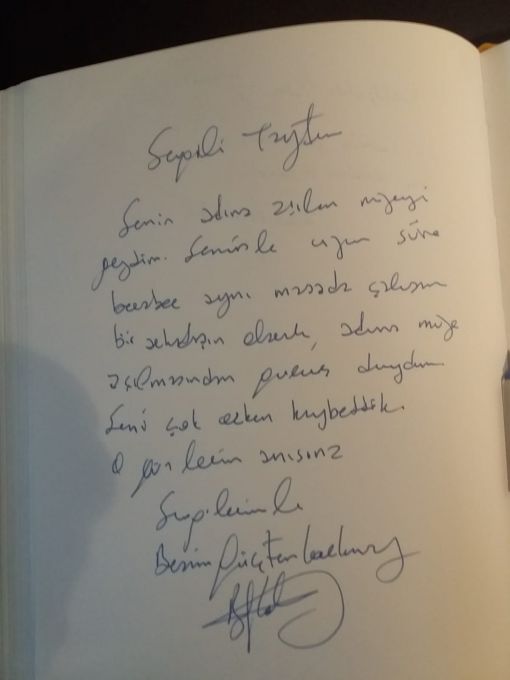 Sevgili Tayfun
Senin adına açılan müzeyi
gezdim. Seninle uzun süre
beraber aynı masada çalışan
bir arkadaşın olarak, adına müze
açılmasından gurur duydum.
Seni çok erken kaybettik.
O günlerin anısına
Sevgilerimle
Besim